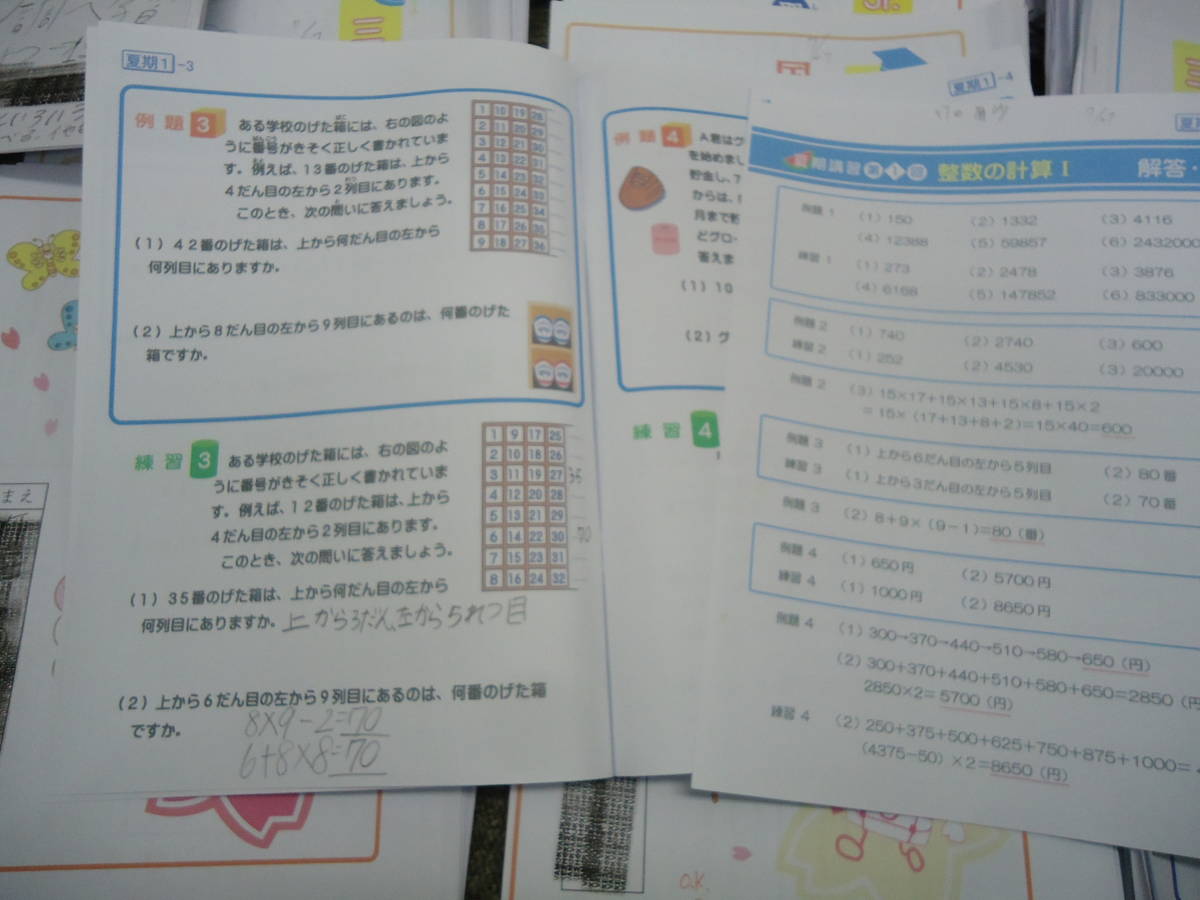 夏期1-3
例題3 ある学校のげた箱には、右の図のよ
うに番号がきそく正しく書かれていま
す。例えば、13番のげた箱は、上から
4だん目の左から2列目にあります。
このとき、次の問いに答えましょう。
1 10 19 28
2 11 20 29
3 12 21 30
4 13 22 31
5 14 23 32
6 15 24 33
7 16 25 34
8 17 26 35
9 18 27 36
(1) 42番のげた箱は、上から何だん目の左から
何列目にありますか。
(2) 上から8だん目の左から9列目にあるのは、何番のげた
箱ですか。
練習3 ある学校のげた箱には、右の図のよ
うに番号がきそく正しく書かれていま
す。例えば、12番のげた箱は、上から
4だん目の左から2列目にあります。
このとき、次の問いに答えましょう。
1 9 17 25
2 10 18 26
3 11 19 27
4 12 20 28
5 13 21 29
6 14 22 30
7 15 23 31
8 16 24 32
35
70
(1) 35番のげた箱は、上から何だん目の左から
何列目にありますか。上から3だん、左から5れつ目
(2) 上から6だん目の左から9列目にあるのは、何番のげた箱
ですか。
8×9-2=70
6+8×8=70
夏期1-4
例題4 A君はグ
を始めまし
貯金し、
からは、
月まで貯
どグロー
答えま
(1) 10
(2) グ
練習4
夏期講習 第1回 整数の計算Ⅰ 解答・
例題1 (1) 150 (2) 1332 (3) 4116
(4) 12388 (5) 59857 (6) 2432000
練習1 (1) 273 (2) 2478 (3) 3876
(4) 6168 (5) 147852 (6) 833000
例題2 (1) 740 (2) 2740 (3) 600
練習2 (1) 252 (2) 4530 (3) 20000
例題2 (3) 15×17+15×13+15×8+15×2
=15×(17+13+8+2)=15×40=600
例題3 (1) 上から6だん目の左から5列目 (2) 80番
練習3 (1) 上から3だん目の左から5列目 (2) 70番
例題3 (2) 8+9×(9-1)=80(番)
例題4 (1) 650円 (2) 5700円
練習4 (1) 1000円 (2) 8650円
例題4 (1) 300→370→440→510→580→650(円)
(2) 300+370+440+510+580+650=2850(円
2850×2=5700(円)
練習4 (2) 250+375+500+625+750+875+1000=
(4375-50)×2=8650(円)
まえ
O.K.